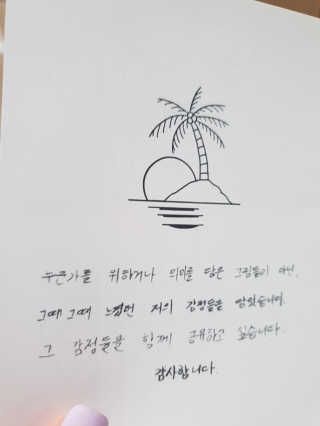 누군가를 위하거나 의미를 담은 그림들이 아닌,
그때 그때 느꼈던 저의 감정들을 담았습니다.
그 감정들을 함께 공유하고 싶습니다.
감사합니다.